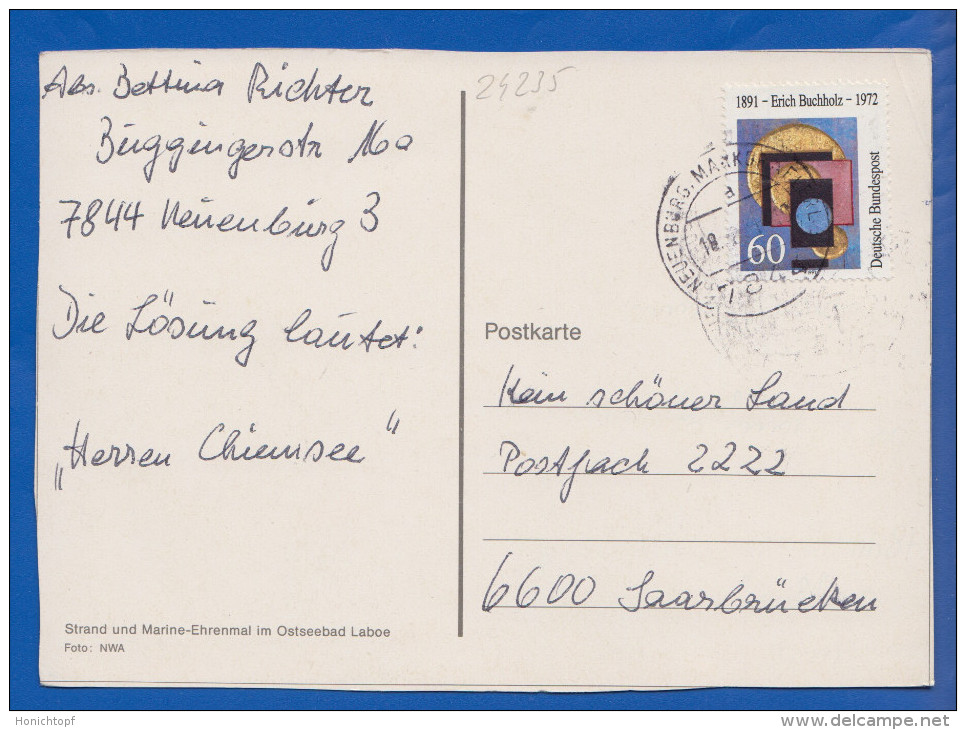 Abs. Bettina Richter
Buggingerstr 16a
7844 Neuenburg 3
Die Lösung lautet:
„Herren Chiemsee“
Strand und Marine-Ehrenmal im Ostseebad Laboe
Foto: NWA
24235
1891 – Erich Buchholz – 1972
Deutsche Bundespost
60
NEUENBURG, MARKGR
18
Postkarte
Kein schöner Land
Postfach 2222
6600 Saarbrücken
Honichtopf
www.delcampe.net